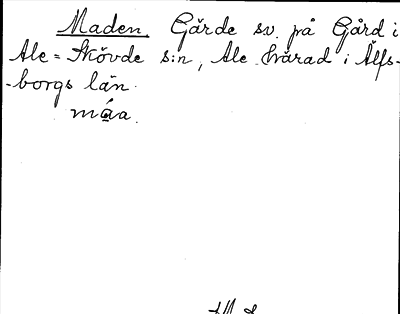 Maden. Gärde sv. på Gård i
Ale=Skövde s:n, Ale härad i Älfs-
-borgs län.
måa.